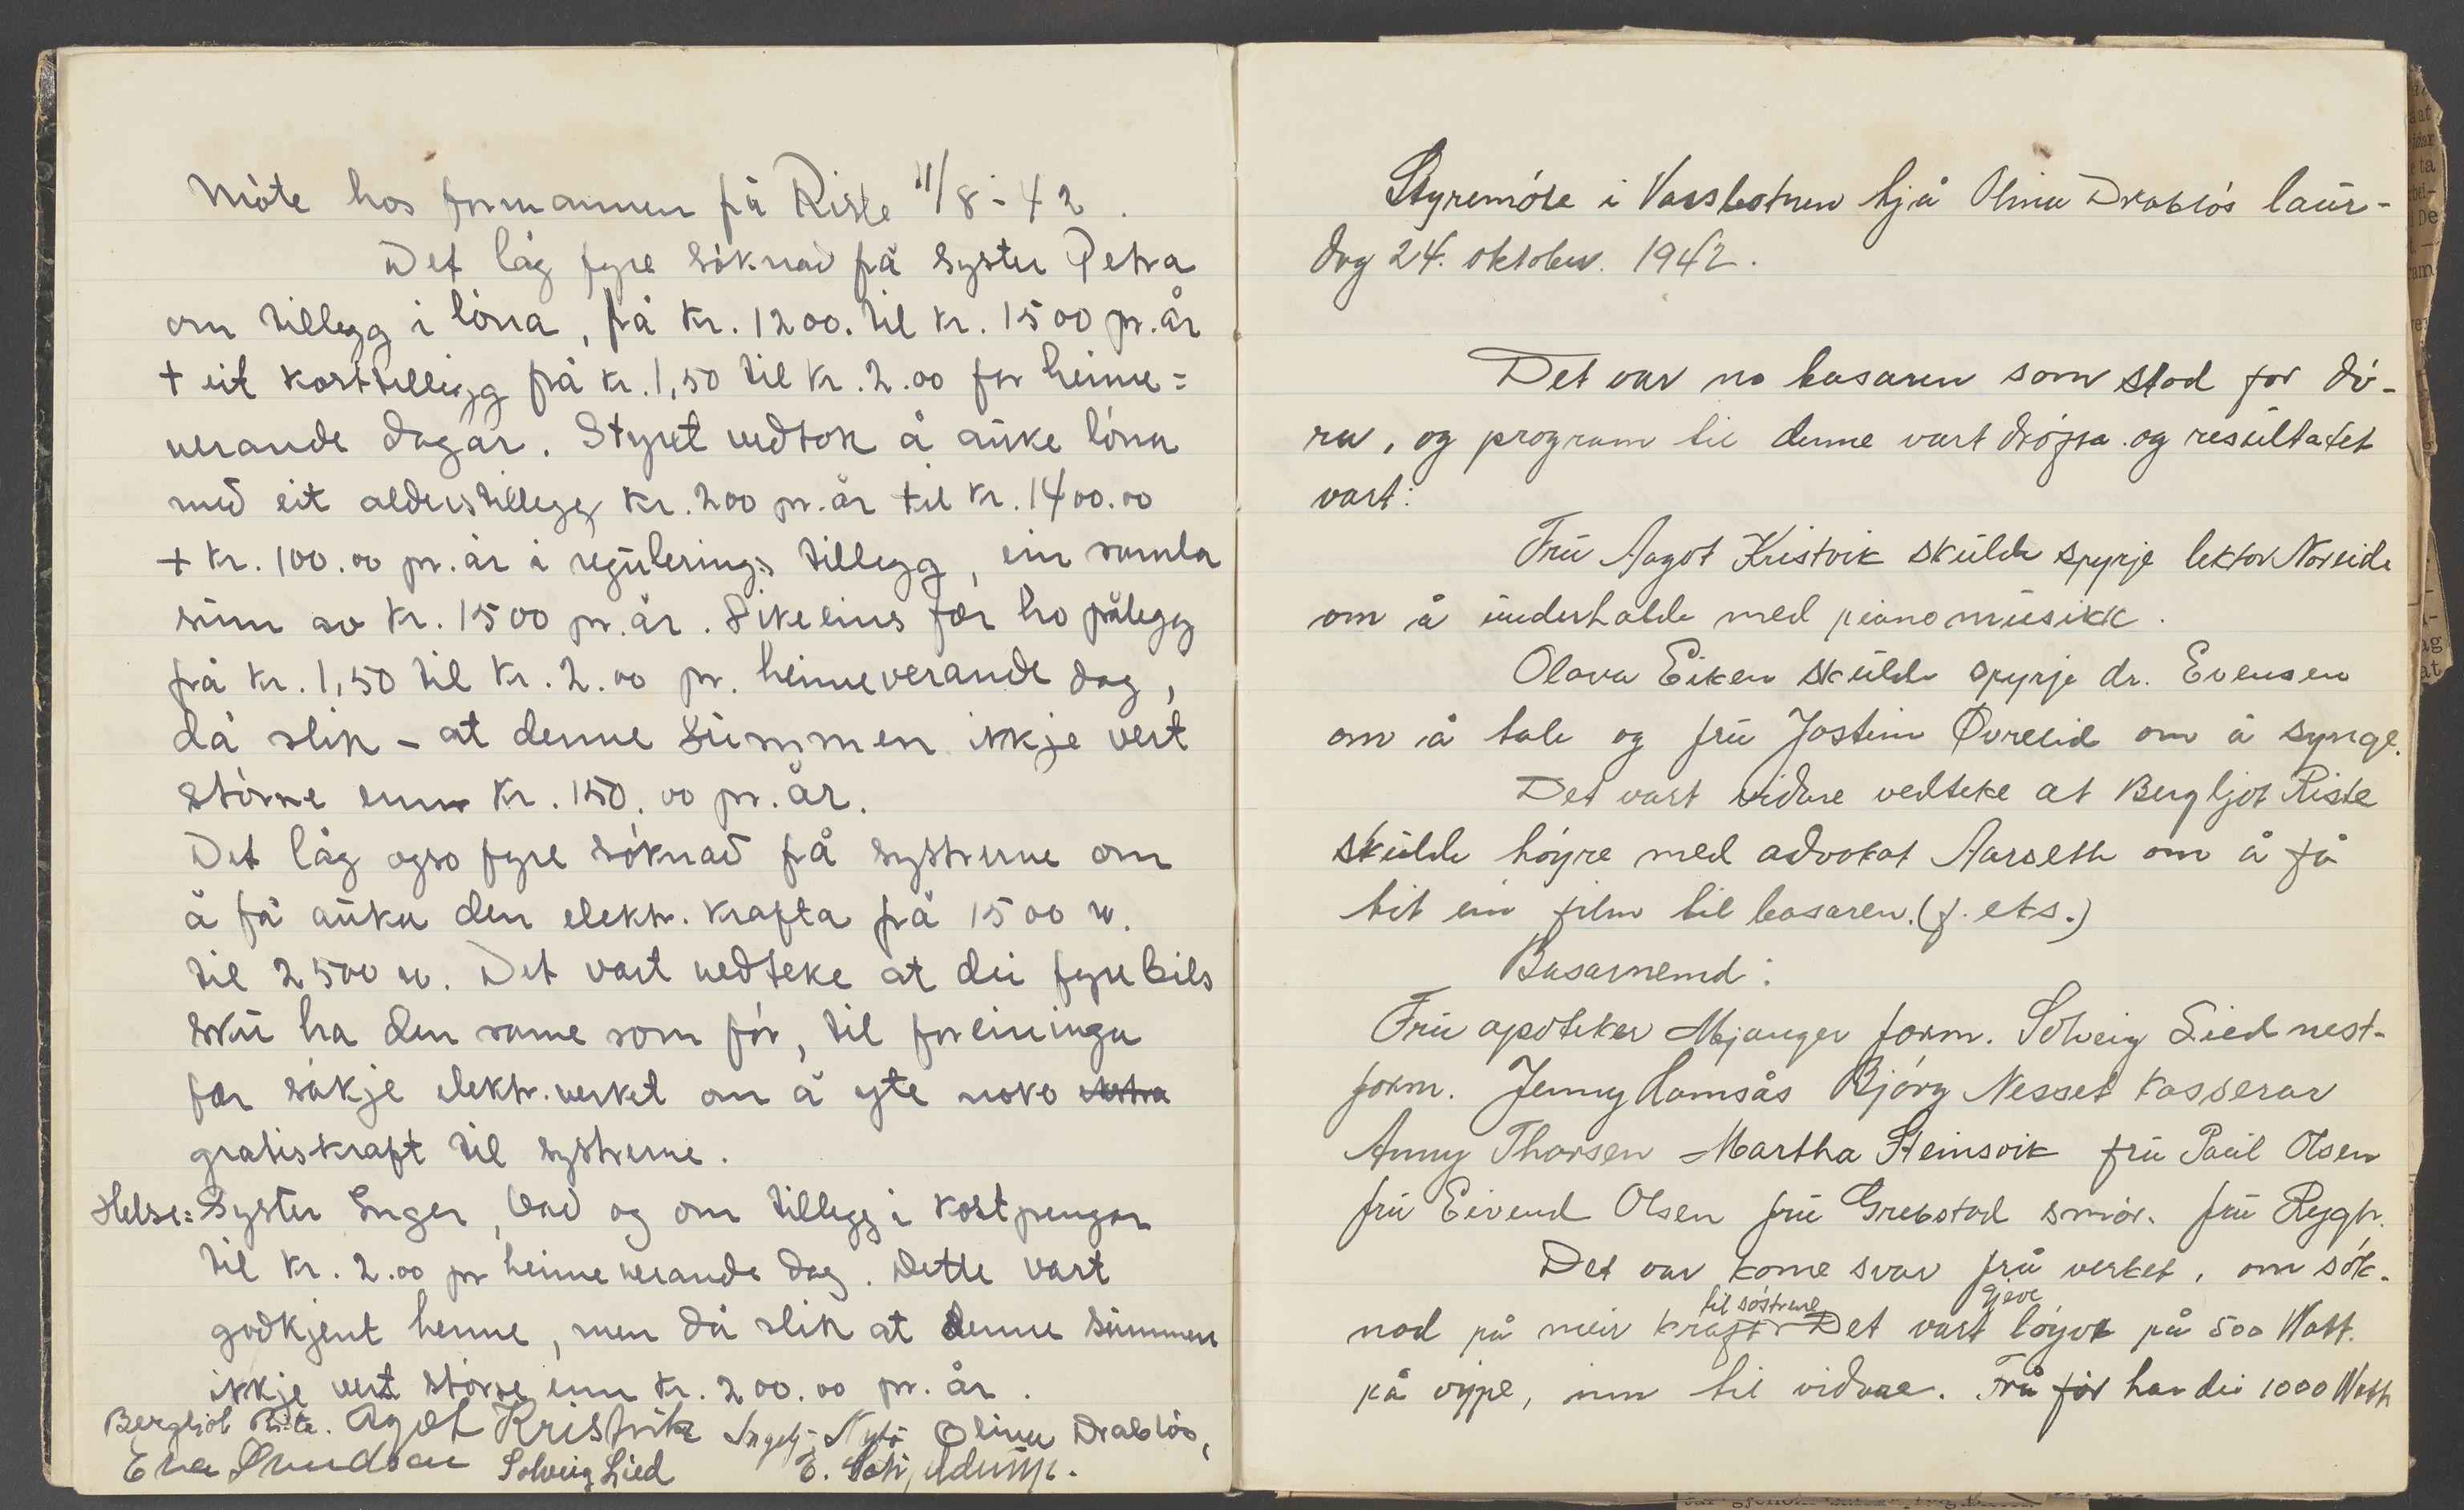 Møte hos formannen på Riste 11/8-42.
Det låg fyre søknad frå syster Petra
om tillegg i løna, frå kr. 1200. til kr. 1500 pr. år
+ eit kosttillegg frå kr. 1,50 til kr. 2.00 for heime=
verande dagar. Styret vedtok å auke løna
med eit alderstillegg kr. 200 pr. år til kr. 1400.00
+ kr. 100.00 pr. år i regulerings tillegg, ein samla
sum av kr. 1500 pr. år. Likeeins fær ho pålegg
frå kr. 1,50 til kr. 2.00 pr. heimeverande dag,
då slik - at denne summen ikkje vert
større enn kr. 150.00 pr. år.
Det låg ogso fyre søknad frå systrene om
å få auka den elektr. krafta frå 1500 w.
til 2500 w. Det vart vedteke at dei fyrebils
sku ha den same som før, til foreininga
fær søkje elektr.verket om å yte noko extra
gratiskraft til systrene.
Helse=syster Inger, bad og om tillegg i kostpengar
til kr. 2.00 pr heimeverande dag. Dette vart
godkjent henne, men då slik at denne summen
ikkje vert større enn kr. 200.00 pr. år.
Bergljot Riste. Agot Kristvik Olina Drabløs,
Solveig Lied
Styremøte i Vassbotnen hjå Olina Drabløs laur-
dag 24. oktober. 1942.
Det var no basaren som stod for dø-
ra, og program til denne vart drøfta og resultatet
vart:
Fru Aagot Kristvik skulde spyrje lektor Noreide
om å underhalde med pianomusikk.
Olava Eiken skulde spyrje dr. Evensen
om å tale og fru Jostein Øvrelid om å synge.
Det vart vidare vedteke at Bergljot Riste
skulde høyre med advokat Aarseth om å få
hit ein film til basaren. (f. eks.)
Basarnemd:
Fru apoteker Mjanger form. Solveig Lied nest-
form. Jenny Hamsås Bjørg Nesset kasserar
Anny Thorsen Martha Steinsvik fru Paul Olsen
fru Eivend Olsen fru Grebstad smør. fru Rygh.
Det var kome svar frå verket, om søk-
til søstrene gjeve
nad på meir kraft Det vart løyvt på 500 Watt.
på vippe, inn til vidare. Frå før har dei 1000 Watt